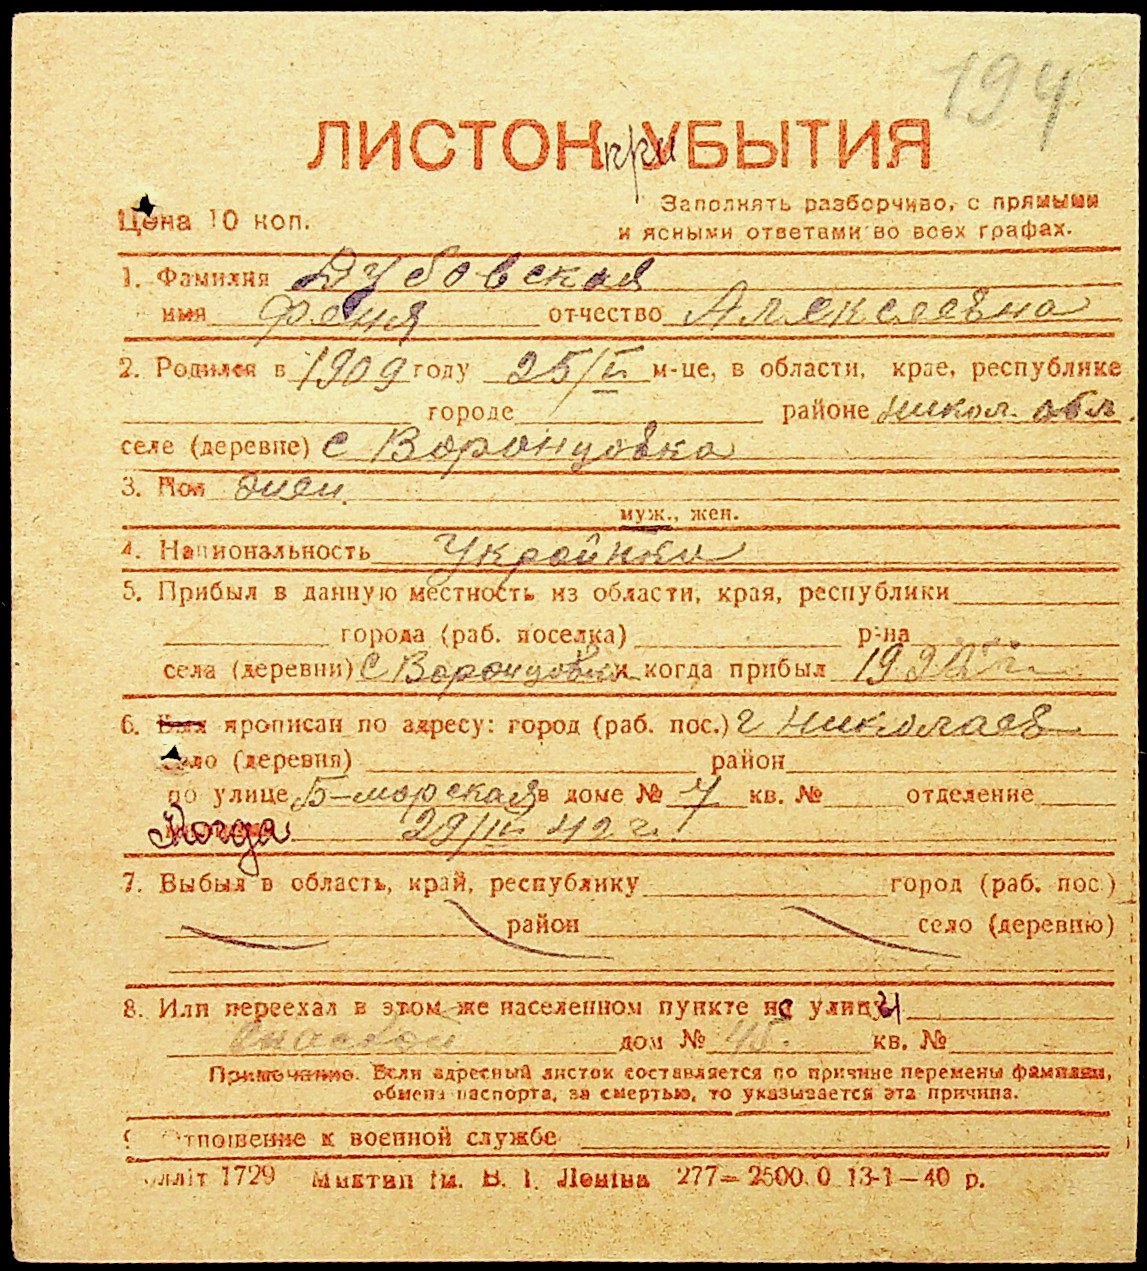 194
ЛИСТОК при УБЫТИЯ
Цена 10 коп.
Заполнять разборчиво, с прямыми
и ясными ответами во всех графах.
1. Фамилия Дубовская
имя Феня отчество Алексеевна
2. Родился в 1909 году 25/II м-це, в области, крае, республике
городе районе Никол. обл.
селе (деревне) с Воронцовка
3. Пол жен.
муж., жен.
4. Национальность Украинка
5. Прибыл в данную местность из области, края, республики
города (раб. поселка) р-на
села (деревни) с Воронцовка и когда прибыл
6. Был прописан по адресу: город (раб. пос.) г Николаев
село (деревня) район
по улице Б-морская в доме № 7 кв. № отделение
Когда 29/IV 42 г.
7. Выбыл в область, край, республику город (раб. пос.)
район село (деревню)
8. Или переехал в этом же населенном пункте не улицы
дом № 45. кв. №
Примечание. Если адресный листок составляется по причине перемены фамилии,
обмена паспорта, за смертью, то указывается эта причина.
9. Отношение к военной службе
олліт 1729 Миктип ім. В. І. Леніна 277—2500.0 13-1—40 р.